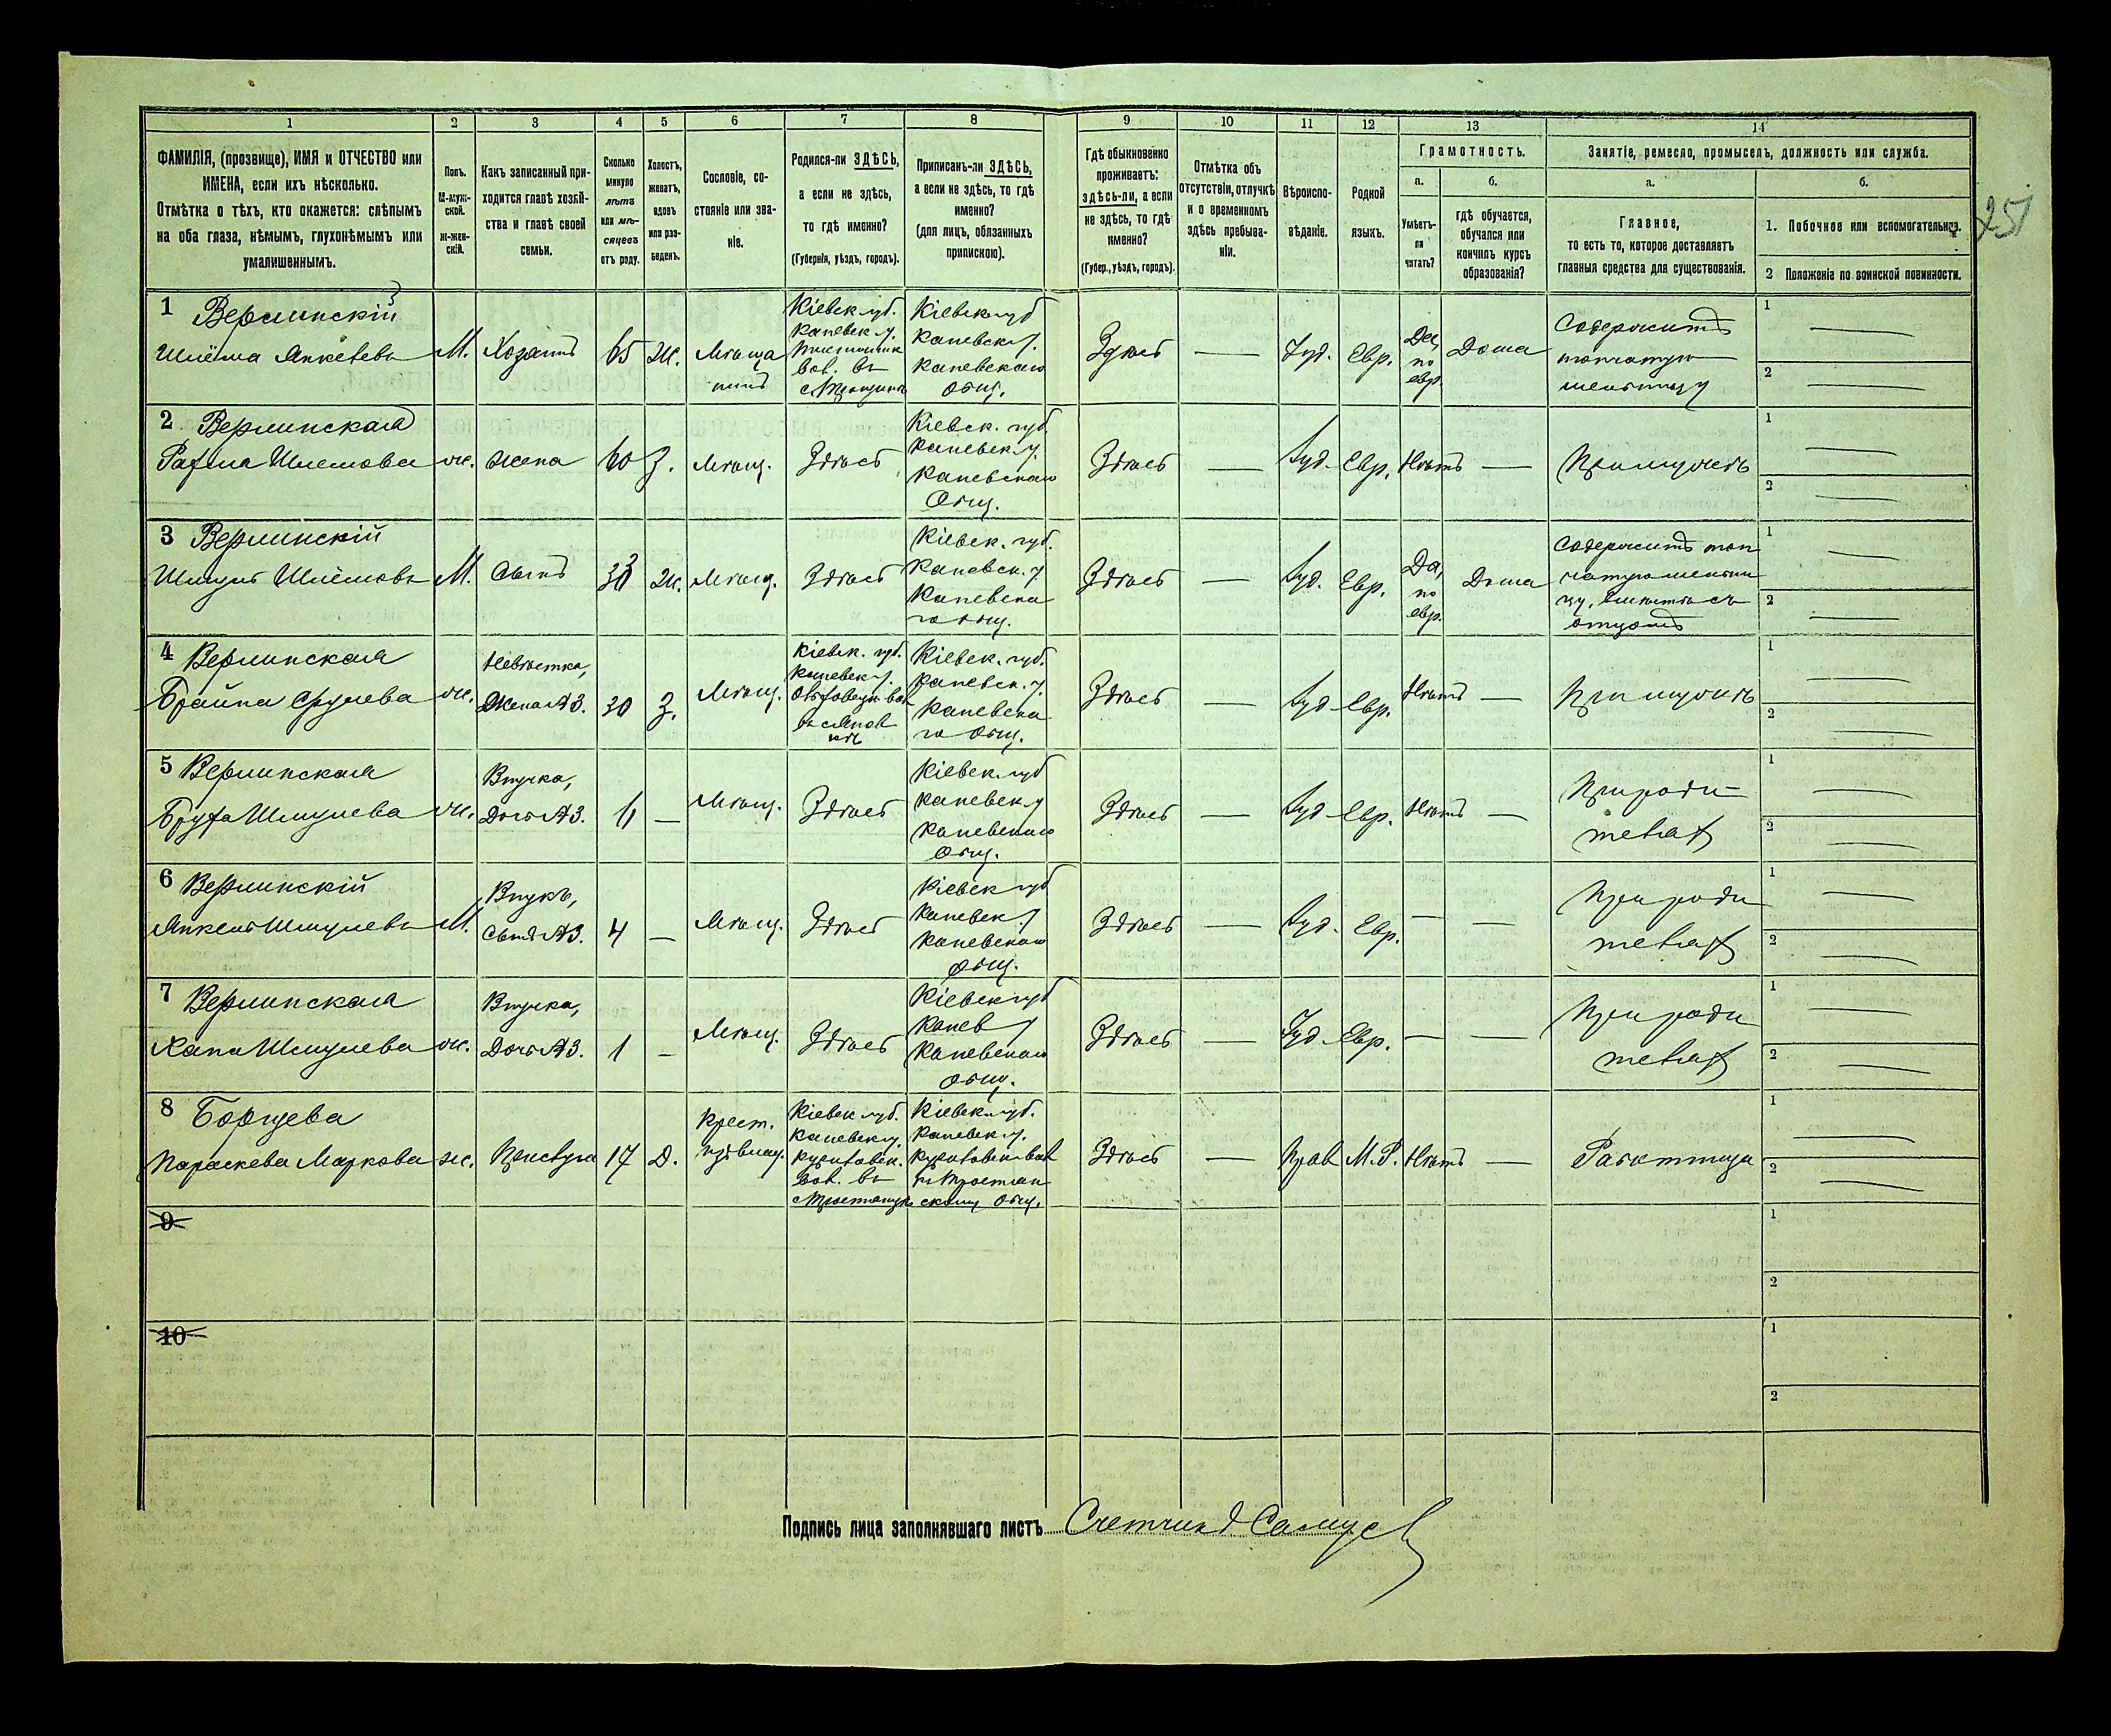 1 2 3 4 5 6 7 8 9 10 11 12 13 14
ФАМИЛІЯ, (прозвище), ИМЯ и ОТЧЕСТВО или
ИМЕНА, если ихъ нѣсколько.
Отмѣтка о тѣхъ, кто окажется: слѣпымъ
на оба глаза, нѣмымъ, глухонѣмымъ или
умалишеннымъ.
Полъ.
М-муж-
ской.
ж-жен-
скій.
Какъ записанный при-
ходится главѣ хозяй-
ства и главѣ своей
семьи.
Сколько
минуло
лѣтъ
или мѣ-
сяцевъ
отъ роду.
Холостъ,
женатъ,
вдовъ
или раз-
веденъ.
Сословіе, со-
стояніе или зва-
ніе.
Родился-ли ЗДѢСЬ,
а если не здѣсь,
то гдѣ именно?
(Губернія, уѣздъ, городъ).
Приписанъ-ли ЗДѢСЬ,
а если не здѣсь, то гдѣ
именно?
(для лицъ, обязанныхъ
припискою).
Гдѣ обыкновенно
проживаетъ:
здѣсь-ли, а если
не здѣсь, то гдѣ
именно?
(Губер., уѣздъ, городъ).
Отмѣтка объ
отсутствіи, отлучкѣ
и о временномъ
здѣсь пребыва-
ніи.
Вѣроиспо-
вѣданіе.
Родной
языкъ.
Грамотность.
а.
Умѣетъ-
ли
читать?
б.
гдѣ обучается,
обучался или
кончилъ курсъ
образованія?
Занятіе, ремесло, промыселъ, должность или служба.
а.
Главное,
то есть то, которое доставляетъ
главныя средства для существованія.
б.
1. Побочное или вспомогательное.
2 Положеніе по воинской повинности.
251
1 Верлинскій
Шлёма Янкелевъ
М.
Хозяинъ
65
Ж.
Мѣща
нинъ
Кіевск губ.
Каневск у.
вол. въ
Кіевск губ
Каневск у.
Каневскаго
Общ.
Здѣсь
—
Іуд.
Евр.
Да,
по
евр.
Дома
Содержитъ
топчатую
мельницу
1 —
2 —
2 Верлинская
Шлемова
ж.
жена
60
З.
Мѣщ.
Здѣсь
Кіевск. губ.
Каневск у.
Каневскаго
Общ.
Здѣсь
—
Іуд.
Евр.
Нѣтъ
—
При мужѣ
1 —
2 —
3 Верлинскій
Шмуль Шлёмовъ
М.
Сынъ
Ж.
Мѣщ.
Здѣсь
Кіевск. губ.
Каневск. у
Каневска
го общ.
Здѣсь
—
Іуд.
Евр.
Да,
по
евр.
Дома
Содержитъ топ
чатую мельни
цу, вмѣстѣ съ
отцомъ
1 —
2 —
4 Верлинская
Брайна Срулева
ж.
Невѣстка,
Жена №3.
30
З.
Мѣщ.
Кіевск. губ.
Каневск у.
Кіевск. губ.
Каневск. у.
Каневска
го Общ.
Здѣсь
—
Іуд
Евр.
Нѣтъ
—
При мужѣ
1 —
2 —
5 Верлинская
Шмулева
ж.
Внучка,
Дочь №3.
—
Мѣщ.
Здѣсь
Кіевск. губ
Каневск у
Каневскаго
Общ.
Здѣсь
—
Іуд
Евр.
Нѣтъ
—
При роди-
теляхъ
1 —
2 —
6 Верлинскій
Янкель Шмулевъ
М.
Внукъ,
Сынъ №3.
4
—
Мѣщ.
Здѣсь
Кіевск губ
Каневск у
Каневскаго
Общ.
Здѣсь
—
Іуд.
Евр.
—
—
При роди
теляхъ
1 —
2 —
7 Верлинская
Хана Шмулева
ж.
Внучка,
Дочь №3.
1
—
Мѣщ.
Здѣсь
Кіевск губ
Канев у
Каневскаго
Общ.
Здѣсь
—
Іуд
Евр.
—
—
При роди
теляхъ
1 —
2 —
8 Борщева
Параскева Маркова
ж.
Прислуга
17
Д.
Крест.
Кіевск губ.
Каневск у.
вол. въ
Кіевск губ.
Каневск у.
Общ.
Здѣсь
—
Прав
М.Р.
Нѣтъ
—
Работница
1 —
2 —
9
1
2
10
1
2
Подпись лица заполнявшаго листъ Счетчикъ